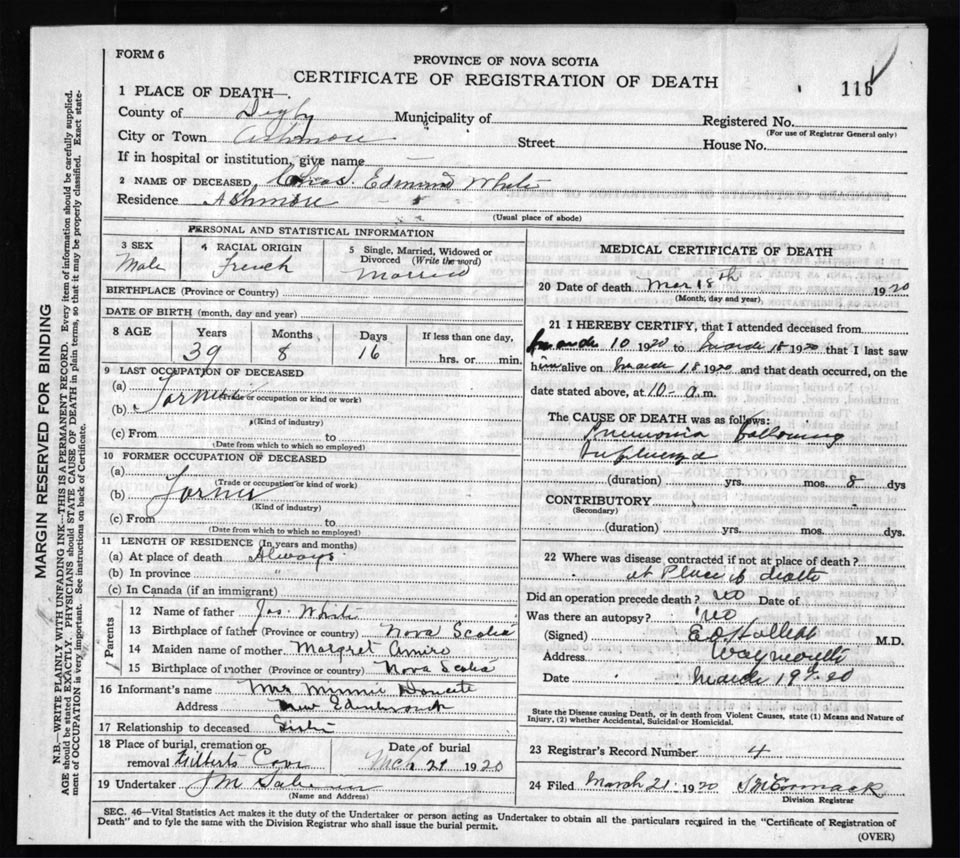 FORM 6
PROVINCE OF NOVA SCOTIA
CERTIFICATE OF REGISTRATION OF DEATH
116
1 PLACE OF DEATH—
County of Digby Municipality of Registered No.
(For use of Registrar General only)
City or Town Ashmore Street House No.
If in hospital or institution, give name —
2 NAME OF DECEASED Chas. Edmund White
Residence Ashmore
(Usual place of abode)
PERSONAL AND STATISTICAL INFORMATION
3 SEX Male
4 RACIAL ORIGIN French
5 Single, Married, Widowed or Divorced (Write the word) Married
BIRTHPLACE (Province or Country)
DATE OF BIRTH (month, day and year)
8 AGE Years 39 Months 8 Days 16 If less than one day, hrs. or min.
9 LAST OCCUPATION OF DECEASED
(a)
(Trade or occupation or kind or work)
(b) Farmer
(Kind of industry)
(c) From to
(Date from which to which so employed)
10 FORMER OCCUPATION OF DECEASED
(a)
(Trade or occupation or kind of work)
(b) Farmer
(Kind of industry)
(c) From to
(Date from which to which so employed)
11 LENGTH OF RESIDENCE (In years and months)
(a) At place of death Always
(b) In province "
(c) In Canada (if an immigrant)
Parents
12 Name of father Jos. White
13 Birthplace of father (Province or country) Nova Scotia
14 Maiden name of mother Margret Amiro
15 Birthplace of mother (Province or country) Nova Scotia
16 Informant's name Mrs Minnie Doucete
Address New Edinborough
17 Relationship to deceased Sister
18 Place of burial, cremation or removal Gilberts Cove Date of burial Mch 21 1920
19 Undertaker J M
(Name and Address)
MEDICAL CERTIFICATE OF DEATH
20 Date of death Mar 18th 1920
(Month, day and year)
21 I HEREBY CERTIFY, that I attended deceased from
March 10 1920 to March 18 1920 that I last saw
him alive on March 18 1920 and that death occurred, on the
date stated above, at 10 a.m.
The CAUSE OF DEATH was as follows:
Pneumonia following
Influenza
(duration) yrs. mos. 8 dys
CONTRIBUTORY
(Secondary)
(duration) yrs. mos. dys.
22 Where was disease contracted if not at place of death?
at Place of death
Did an operation precede death? no Date of
Was there an autopsy? no
(Signed) M.D.
Address Weymouth
Date March 19th 20
State the Disease causing Death, or in death from Violent Causes, state (1) Means and Nature of
Injury, (2) whether Accidental, Suicidal or Homicidal.
23 Registrar's Record Number 4
24 Filed March 21 1920 McCormack
Division Registrar
SEC. 46—Vital Statistics Act makes it the duty of the Undertaker or person acting as Undertaker to obtain all the particulars required in the "Certificate of Registration of
Death" and to fyle the same with the Division Registrar who shall issue the burial permit.
(OVER)
MARGIN RESERVED FOR BINDING
N.B.—WRITE PLAINLY WITH UNFADING INK—THIS IS A PERMANENT RECORD. Every item of information should be carefully supplied.
AGE should be stated EXACTLY. PHYSICIANS should STATE CAUSE OF DEATH in plain terms, so that it may be properly classified. Exact state-
ment of OCCUPATION is very important. See instructions on back of Certificate.